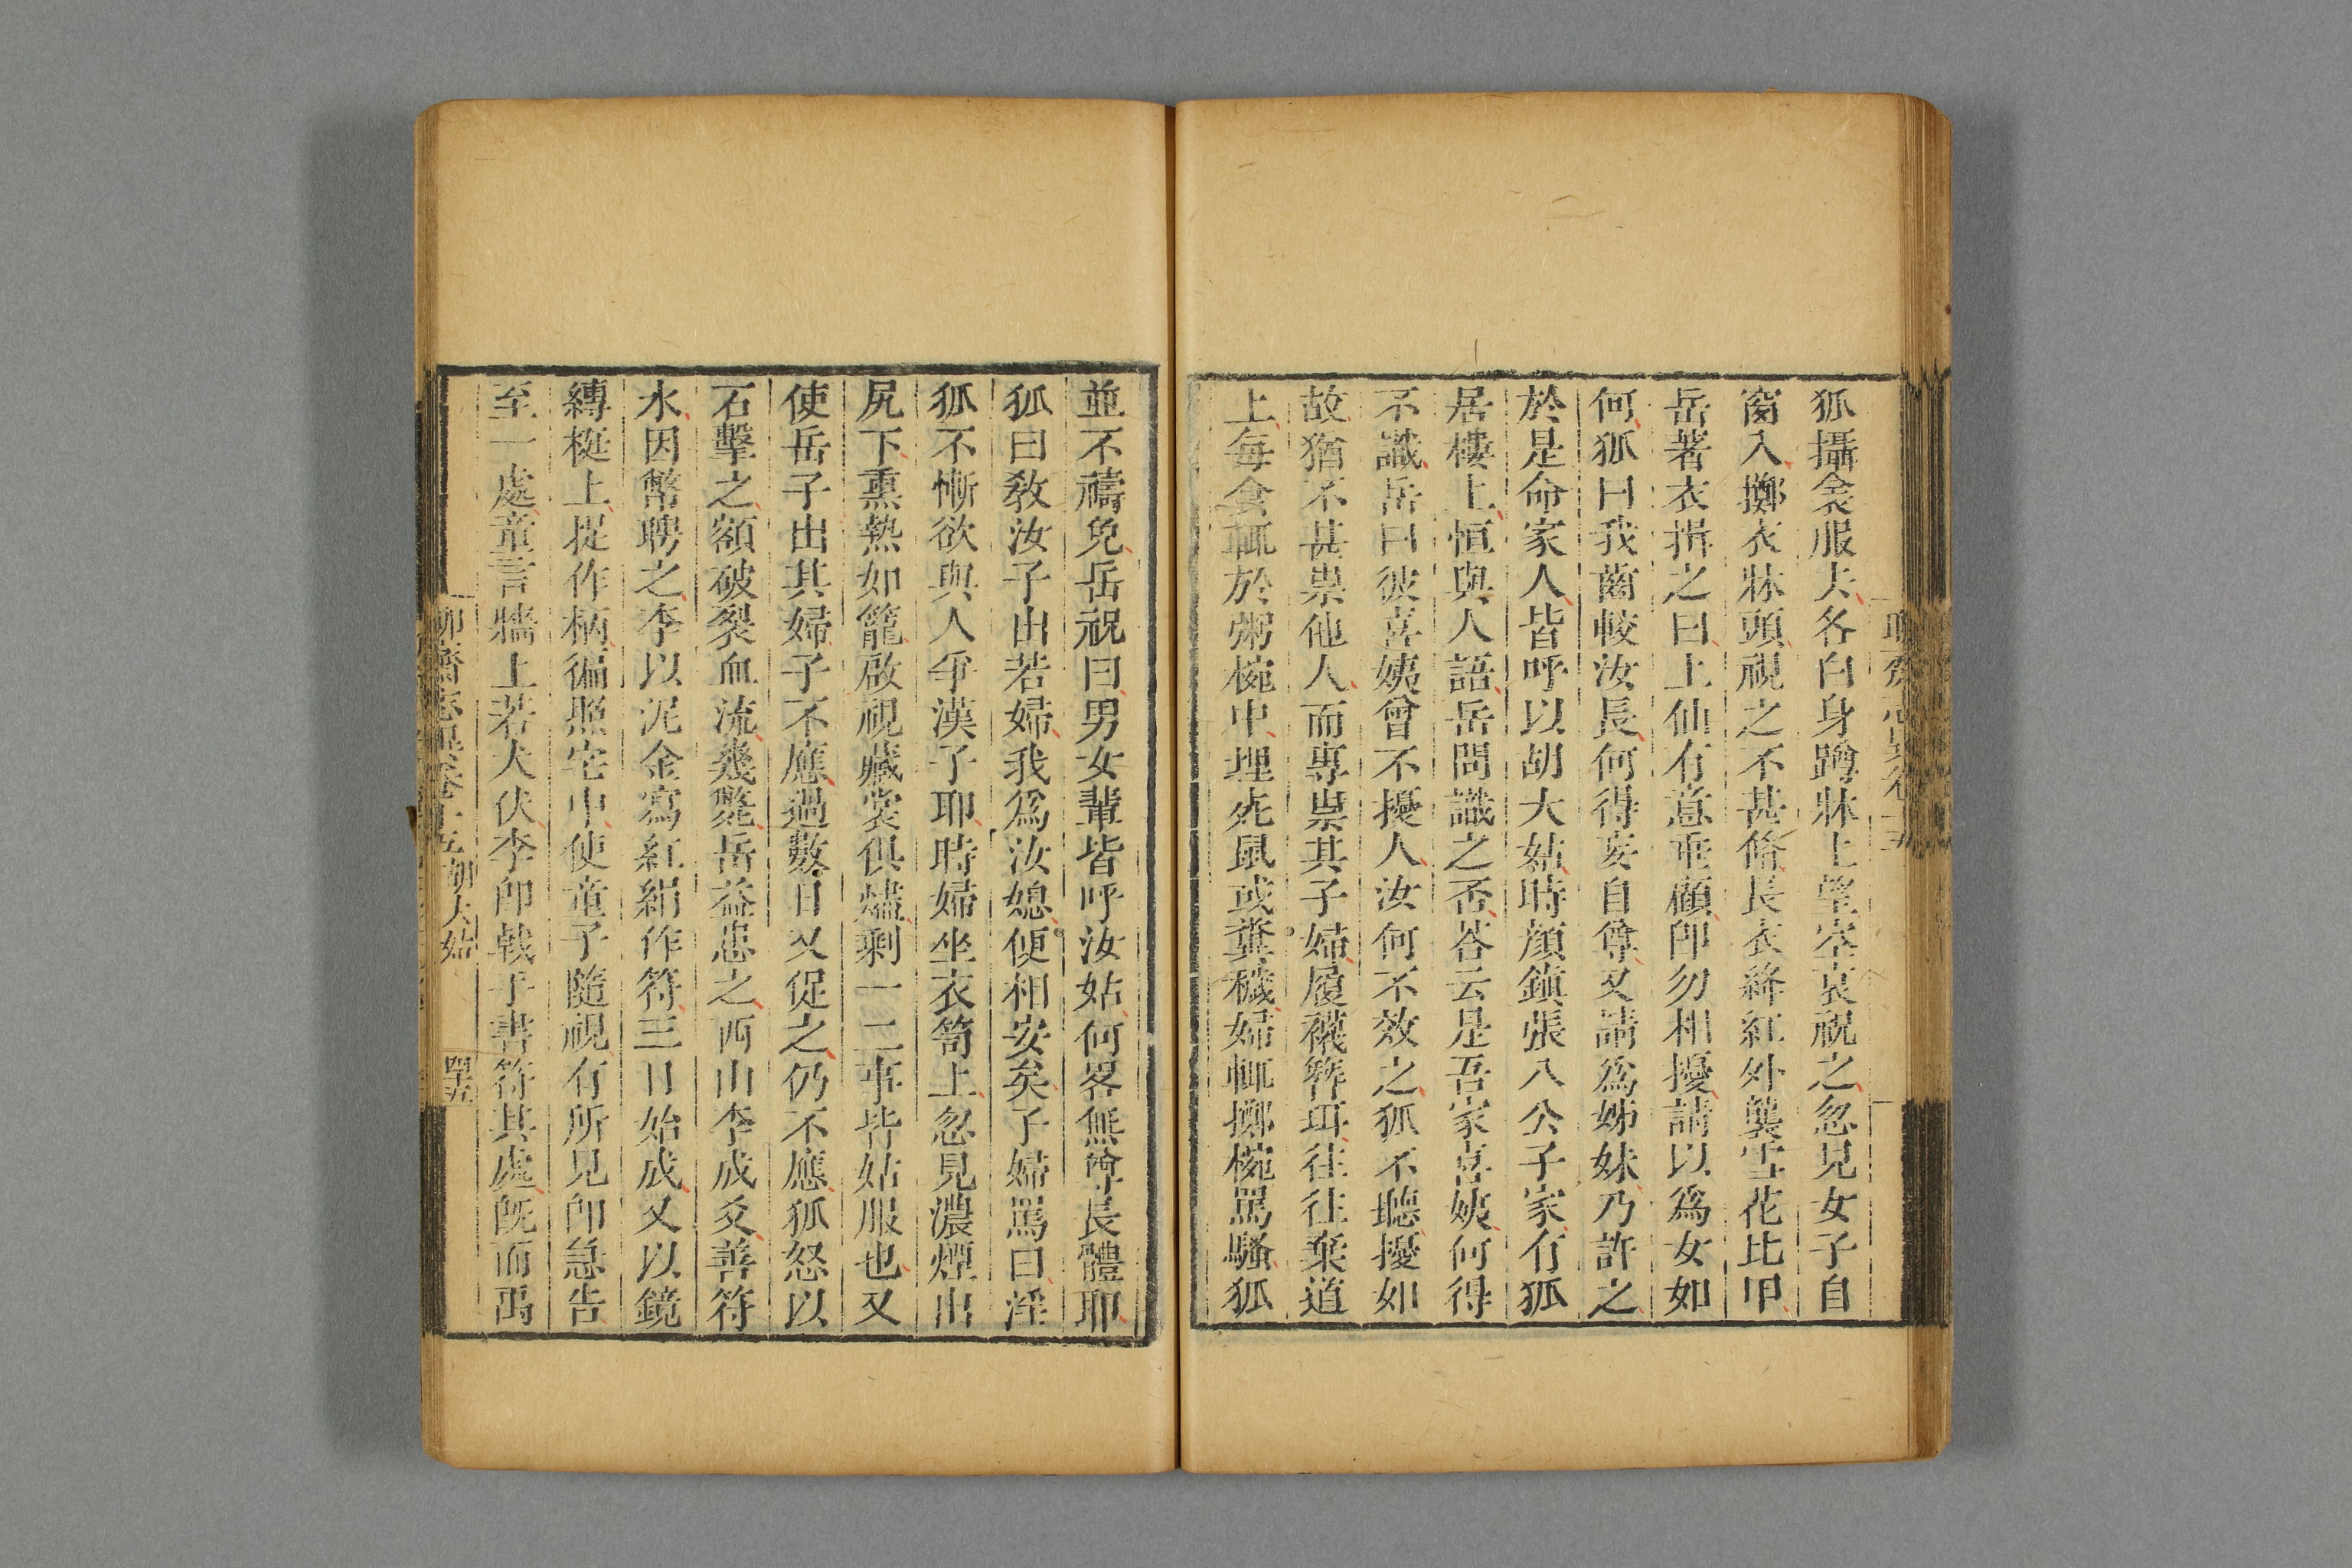 狐攝衾服夫各白身蹲牀上望空哀祝之忽見女子自
窗入擲衣牀頭視之不甚脩長衣絳紅外襲雪花比甲
岳著衣揖之曰上仙有意垂顧卽勿相擾請以爲女如
何狐曰我齒較汝長何得妄自尊又請爲姊妹乃許之
於是命家人皆呼以胡大姑時顔鎭張八公子家有狐
居樓上恒與人語岳問識之否荅云是吾家喜姨何得
不識岳曰彼喜姨曾不擾人汝何不效之狐不聽擾如
故猶不甚祟他人而專祟其子婦履襪簪珥往往棄道
上每食輒於粥椀中埋死鼠或糞穢婦輒擲椀罵騷狐
並不禱免岳祝曰男女輩皆呼汝姑何畧無尊長體耶
狐曰敎汝子出若婦我爲汝媳便相安矣子婦罵曰淫
狐不慚欲與人爭漢子耶時婦坐衣笥上忽見濃煙出
尻下熏熱如籠啟視藏裳俱燼剩一二事皆姑服也又
使岳子出其婦子不應過數日又促之仍不應狐怒以
石擊之額破裂血流幾斃岳益患之西山李成爻善符
水因幣聘之李以泥金寫紅絹作符三日始成又以鏡
縳梃上捉作柄徧照宅中使童子隨視有所見卽急告
至一處童言牆上若犬伏李卽戟手書符其處旣而禹
聊齋志異卷十五 胡大姑 四五